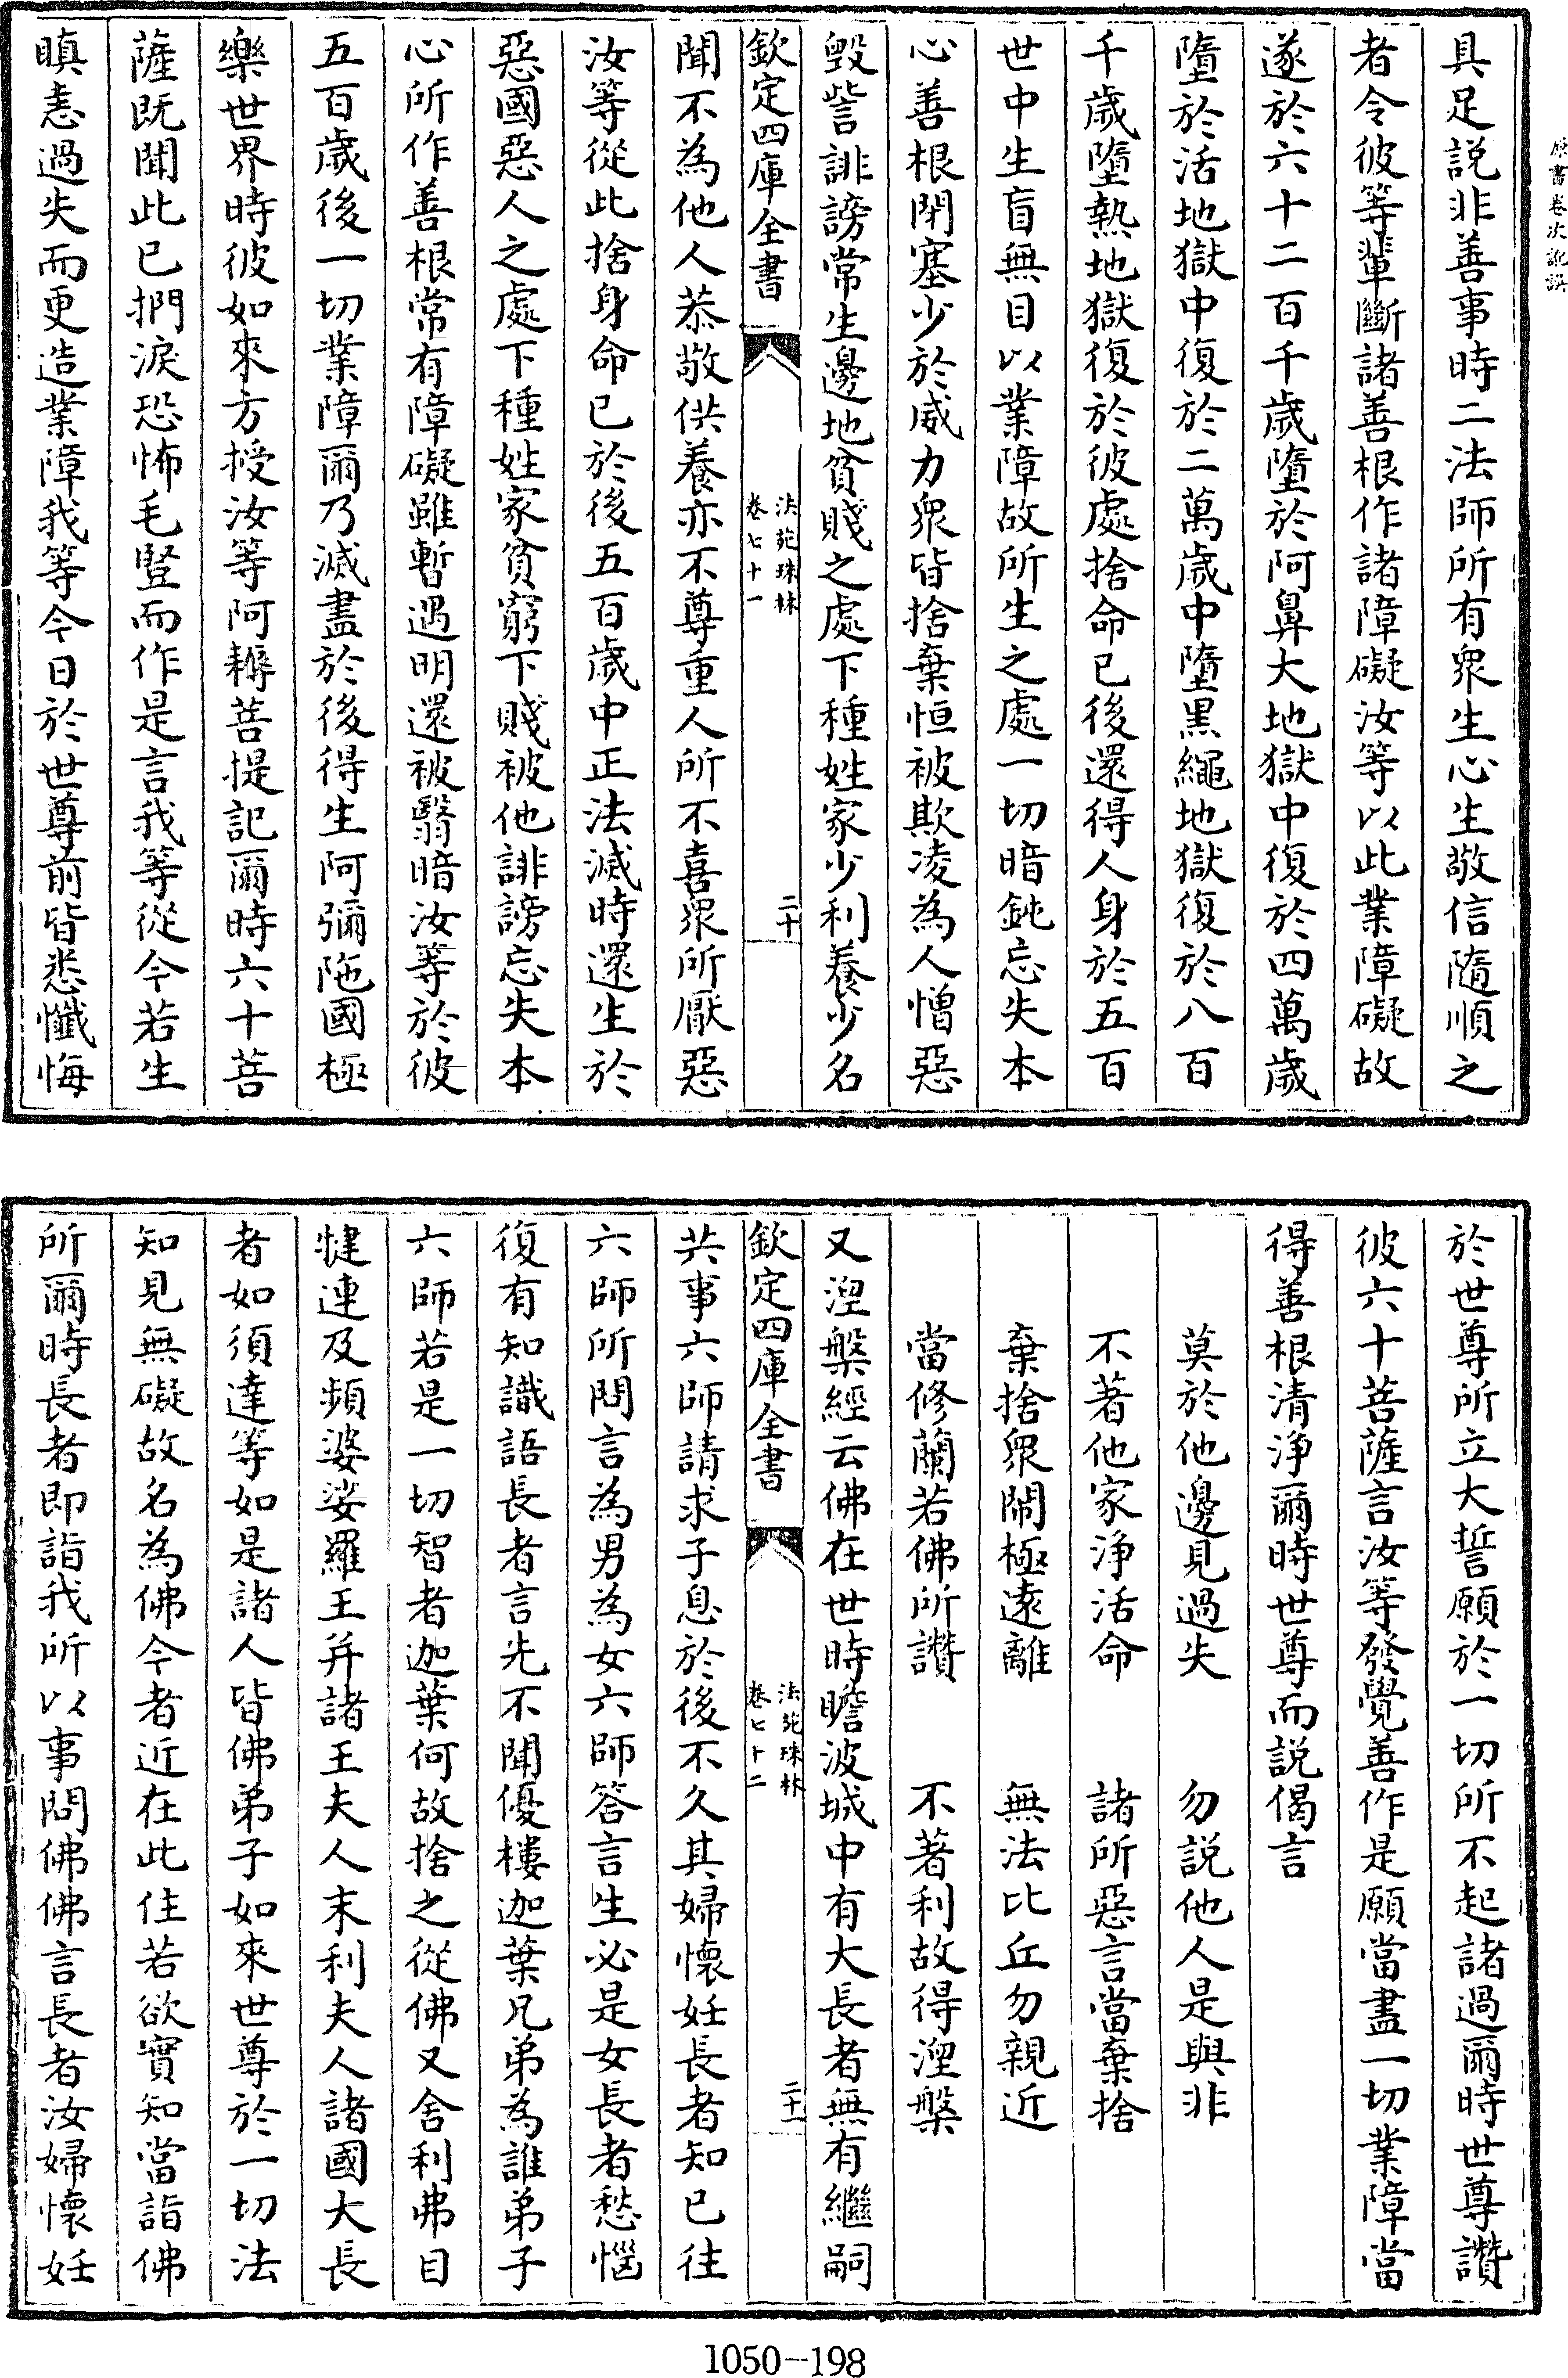 原書卷次訛誤
具足說非善事時二法師所有衆生心生敬信隨順之
者令彼等輩斷諸善根作諸障礙汝等以此業障礙故
遂於六十二百千歲墮於阿鼻大地獄中復於四萬歲
墮於活地獄中復於二萬歲中墮黑繩地獄復於八百
千歲墮熱地獄復於彼處捨命已後還得人身於五百
世中生盲無目以業障故所生之處一切暗鈍忘失本
心善根閉塞少於威力衆皆捨棄恒被欺凌為人憎惡
毀訾誹謗常生邊地貧賤之處下種姓家少利養少名
欽定四庫全書
法苑珠林
卷七十一
二十
聞不為他人恭敬供養亦不尊重人所不喜衆所厭惡
汝等從此捨身命已於後五百歲中正法滅時還生於
惡國惡人之處下種姓家貧窮下賤被他誹謗忘失本
心所作善根常有障礙雖暫遇明還被翳暗汝等於彼
五百歲後一切業障爾乃滅盡於後得生阿彌陁國極
樂世界時彼如來方授汝等阿耨菩提記爾時六十菩
薩既聞此已捫淚恐怖毛豎而作是言我等從今若生
瞋恚過失而更造業障我等今日於世尊前皆悉懺悔
於世尊所立大誓願於一切所不起諸過爾時世尊讚
彼六十菩薩言汝等發覺善作是願當盡一切業障當
得善根清淨爾時世尊而說偈言
莫於他邊見過失　勿說他人是與非
不著他家淨活命　諸所惡言當棄捨
棄捨衆閙極遠離　無法比丘勿親近
當修蘭若佛所讚　不著利故得涅槃
又涅槃經云佛在世時瞻波城中有大長者無有繼嗣
欽定四庫全書
法苑珠林
卷七十二
二十一
共事六師請求子息於後不久其婦懷妊長者知已往
六師所問言為男為女六師答言生必是女長者愁惱
復有知識語長者言先不聞優樓迦葉兄弟為誰弟子
六師若是一切智者迦葉何故捨之從佛又舍利弗目
犍連及頻婆娑羅王并諸王夫人末利夫人諸國大長
者如須達等如是諸人皆佛弟子如來世尊於一切法
知見無礙故名為佛今者近在此住若欲實知當詣佛
所爾時長者即詣我所以事問佛佛言長者汝婦懷妊
1050-198